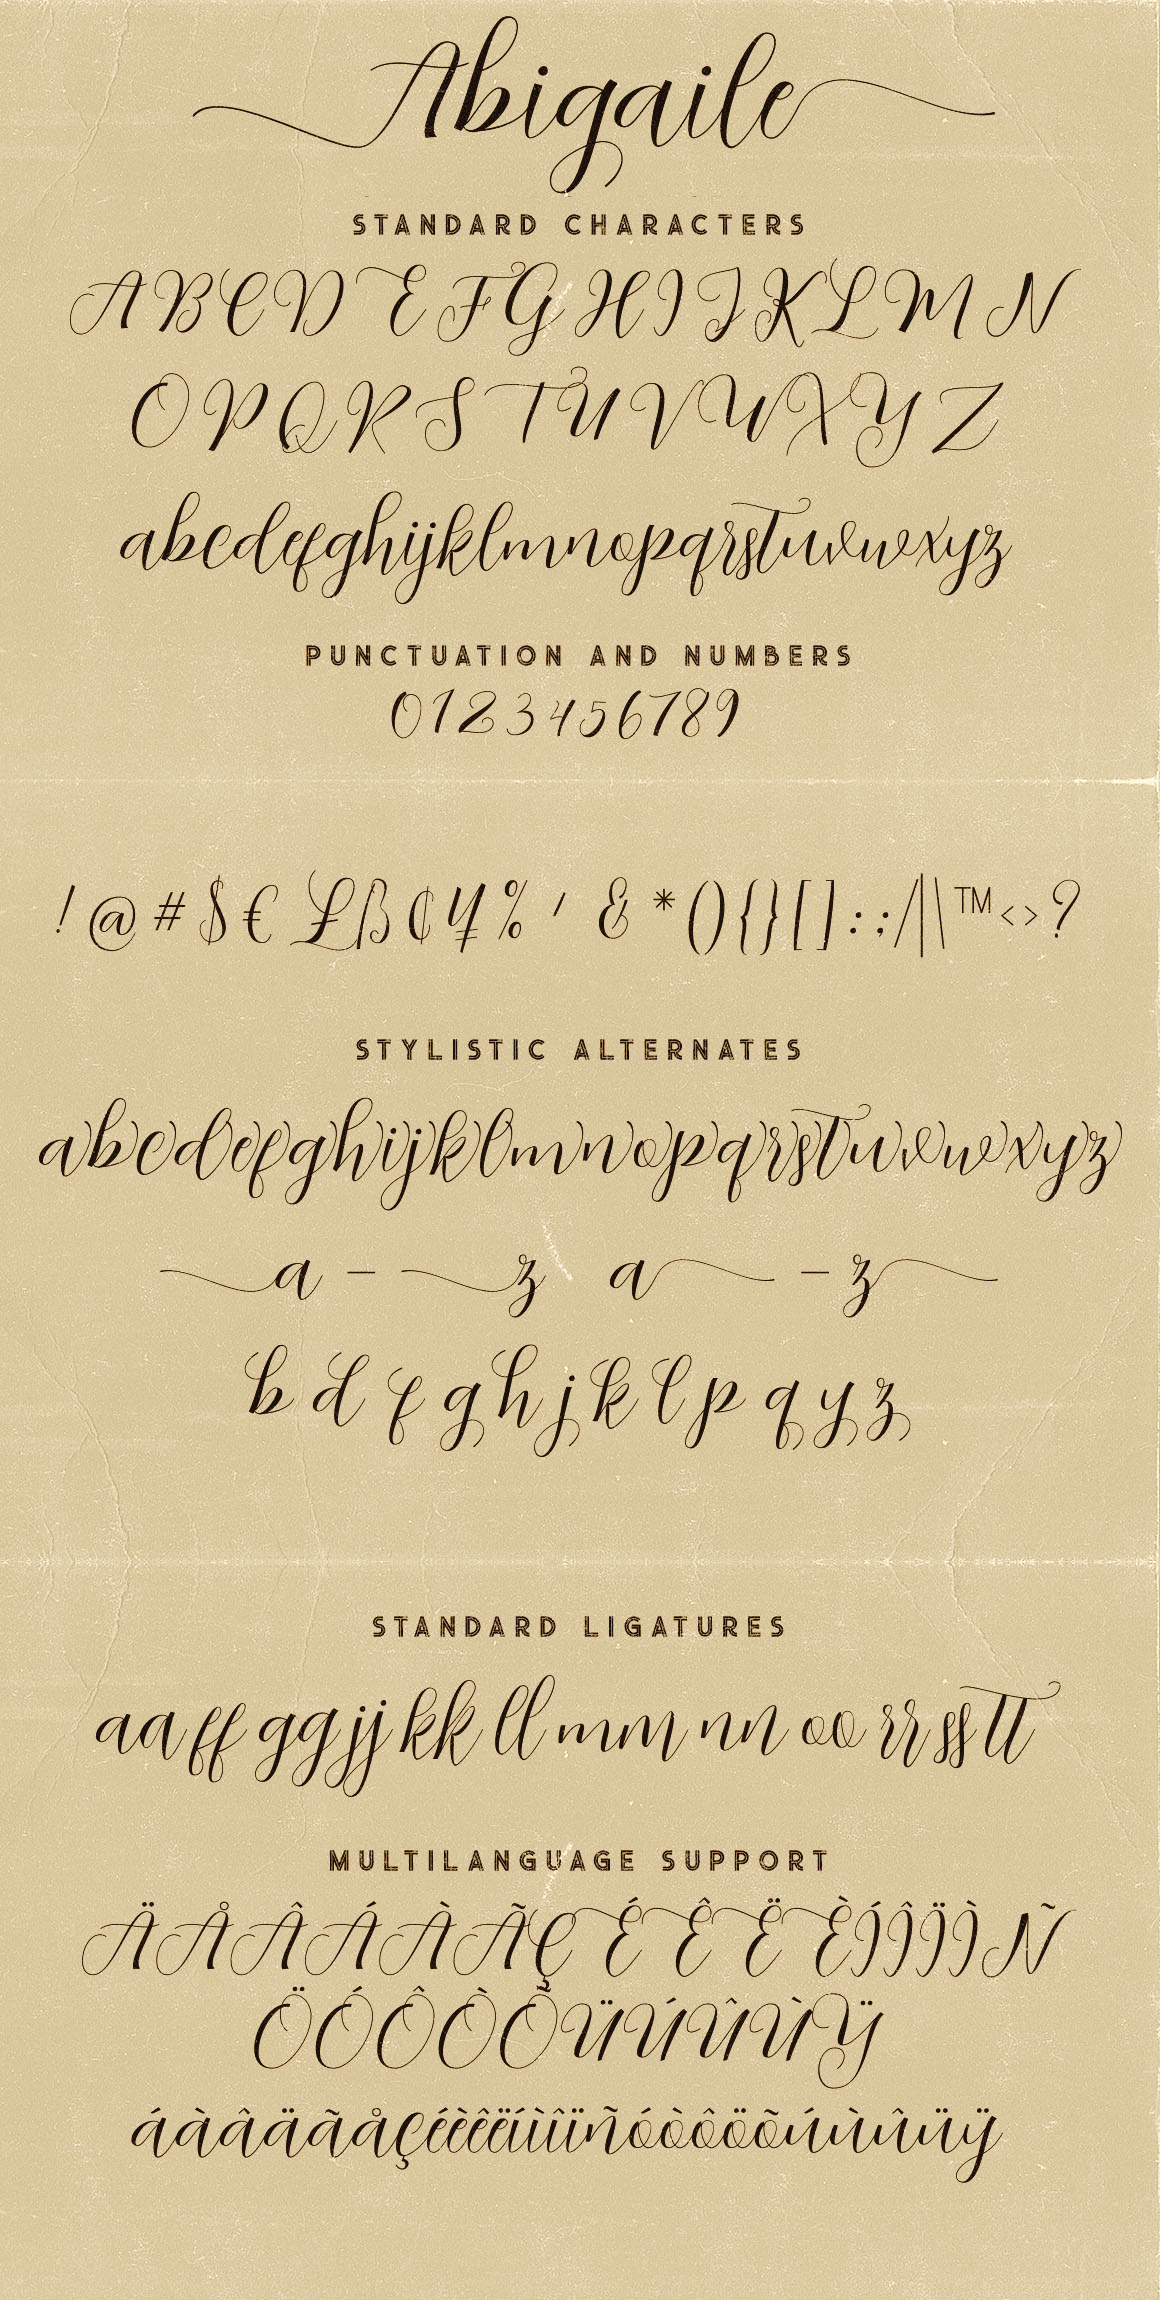 Abigaile
STANDARD CHARACTERS
A B C D E F G H I J K L M N
O P Q R S T U V W X Y Z
abcdefghijklmnopqrstuvwxyz
PUNCTUATION AND NUMBERS
0123456789
! @ # $ € £ ß ¢ ¥ % ' & * () {} [] : ; / | \ ™ < > ?
STYLISTIC ALTERNATES
abcdefghijklmnopqrstuvwxyz
a - z a - z
b d f g h j k l p q y z
STANDARD LIGATURES
aa ff gg jj kk ll mm nn oo rr ss tt
MULTILANGUAGE SUPPORT
Ä Å Â Á À Ã Ç É Ê Ë È Í Î Ï Ì Ñ
Ö Ó Ô Ò Õ Ü Ú Û Ù Ÿ
áàâäãåçéèêëíìîïñóòôöõúùûüÿ